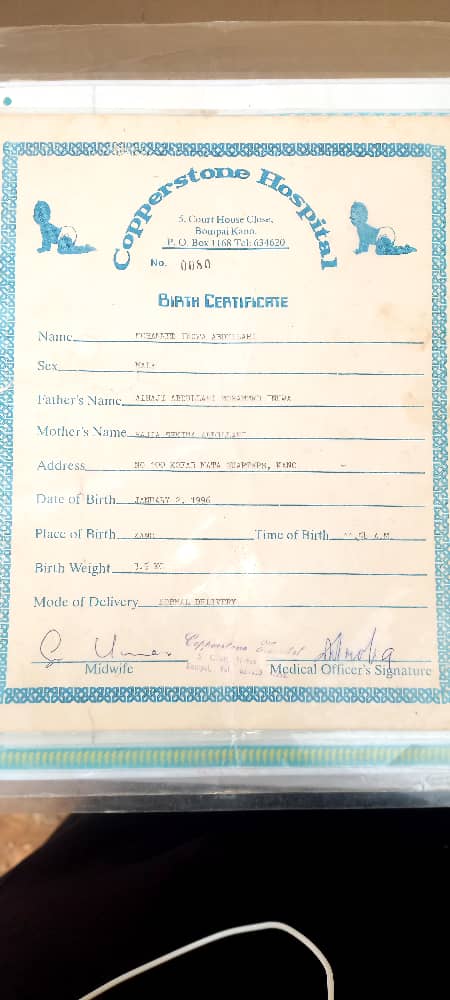 Copperstone Hospital
5, Court House Close,
Bompai Kano.
P. O. Box 1168 Tel: 634620
No. 0080
BIRTH CERTIFICATE
Name MOHAMMED INUWA ABDULLAHI
Sex MALE
Father's Name ALHAJI ABDULLAHI MOHAMMED INUWA
Mother's Name HAJIA ABDULLAHI
Address NO 100 KOFAR MATA QUARTERS, KANO
Date of Birth JANUARY 2, 1996
Place of Birth KANO Time of Birth A.M.
Birth Weight 3.5 KG
Mode of Delivery NORMAL DELIVERY
Copperstone Hospital
Midwife Medical Officer's Signature